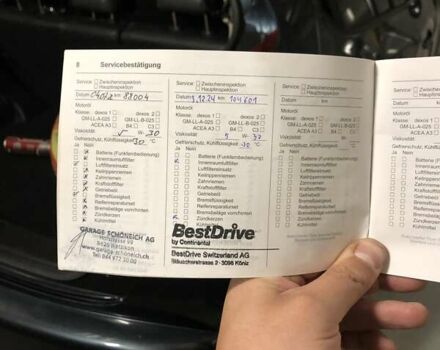 8 Servicebestätigung
Service: Zwischeninspektion
Hauptinspektion
Datum km 88004
Motoröl
Klasse: dexos 1 dexos 2
GM-LL-A-025 GM-LL-B-025
ACEA A3 B4 C3
Viskosität W- 30
Gefrierschutz, Kühlflüssigkeit -30 °C
Ja Nein
Batterie (Funkfernbedienung)
Innenraumluftfilter
Luftfiltereinsatz
Keilrippenriemen
Zahnriemen
Kraftstofffilter
Getriebeöl
Bremsflüssigkeit
Reifenreparaturset
Bremsbeläge vorn/hinten
Zündkerzen
Kühlmittel
GARAGE SCHÖNEICH AG
8620 Wetzikon
www.garage-schoneich.ch
Tel 044 972 10 00
Service: Zwischeninspektion
Hauptinspektion
Datum 12.24 km 104601
Motoröl
Klasse: dexos 1 dexos 2
GM-LL-A-025 GM-LL-B-025
ACEA A3 B4 C3
Viskosität 5 W-
Gefrierschutz, Kühlflüssigkeit -30 °C
Ja Nein
Batterie (Funkfernbedienung)
Innenraumluftfilter
Luftfiltereinsatz
Keilrippenriemen
Zahnriemen
Kraftstofffilter
Getriebeöl
Bremsflüssigkeit
Reifenreparaturset
Bremsbeläge vorn/hinten
Zündkerzen
Kühlmittel
BestDrive
by Continental
BestDrive Switzerland AG
2 - 3098 Köniz
Service: Zwischeninspektion
Hauptinspektion
Datum km
Motoröl
Klasse: dexos 1 dexos 2
GM-LL-A-025 GM-LL-B-025
ACEA A3 B4 C3
Viskosität
Gefrierschutz, Kühlflüssigkeit °C
Ja Nein
Batterie (Funkfernbedienung)
Innenraumluftfilter
Luftfiltereinsatz
Keilrippenriemen
Zahnriemen
Kraftstofffilter
Getriebeöl
Bremsflüssigkeit
Reifenreparaturset
Bremsbeläge vorn/hinten
Zündkerzen
Kühlmittel